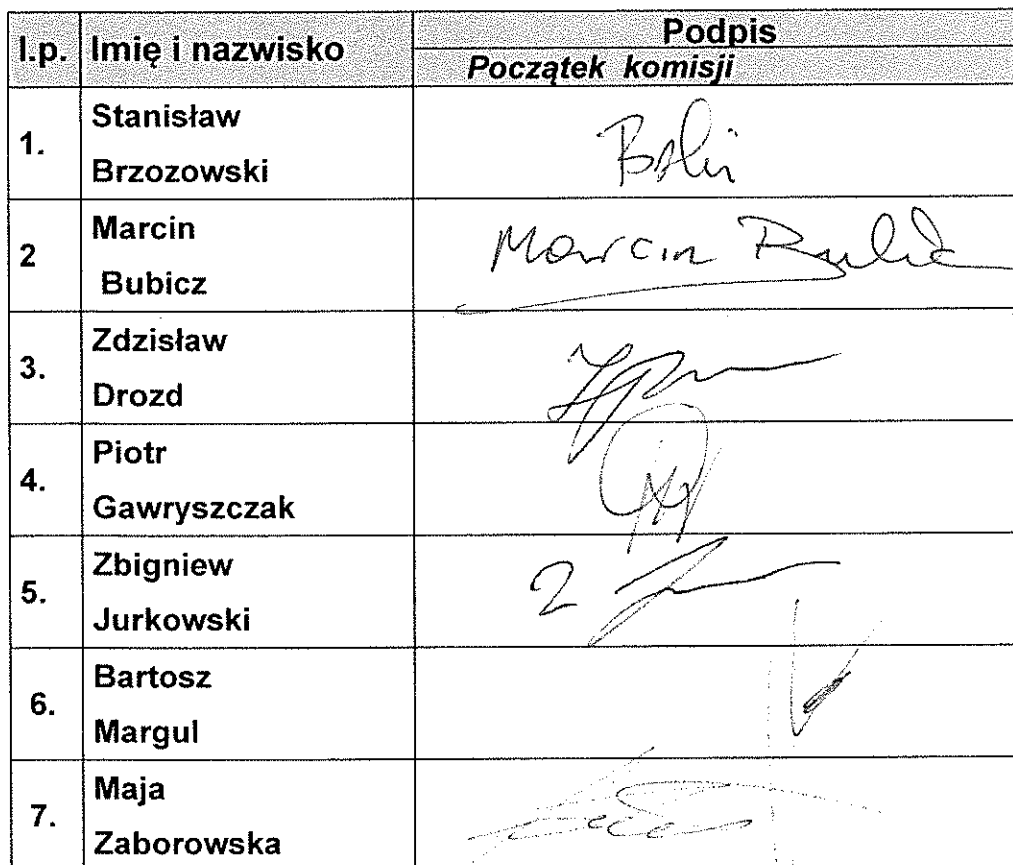 l.p. Imię i nazwisko Podpis
Początek komisji
1. Stanisław
Brzozowski
2 Marcin
Bubicz
Marcin
3. Zdzisław
Drozd
4. Piotr
Gawryszczak
5. Zbigniew
Jurkowski
6. Bartosz
Margul
7. Maja
Zaborowska